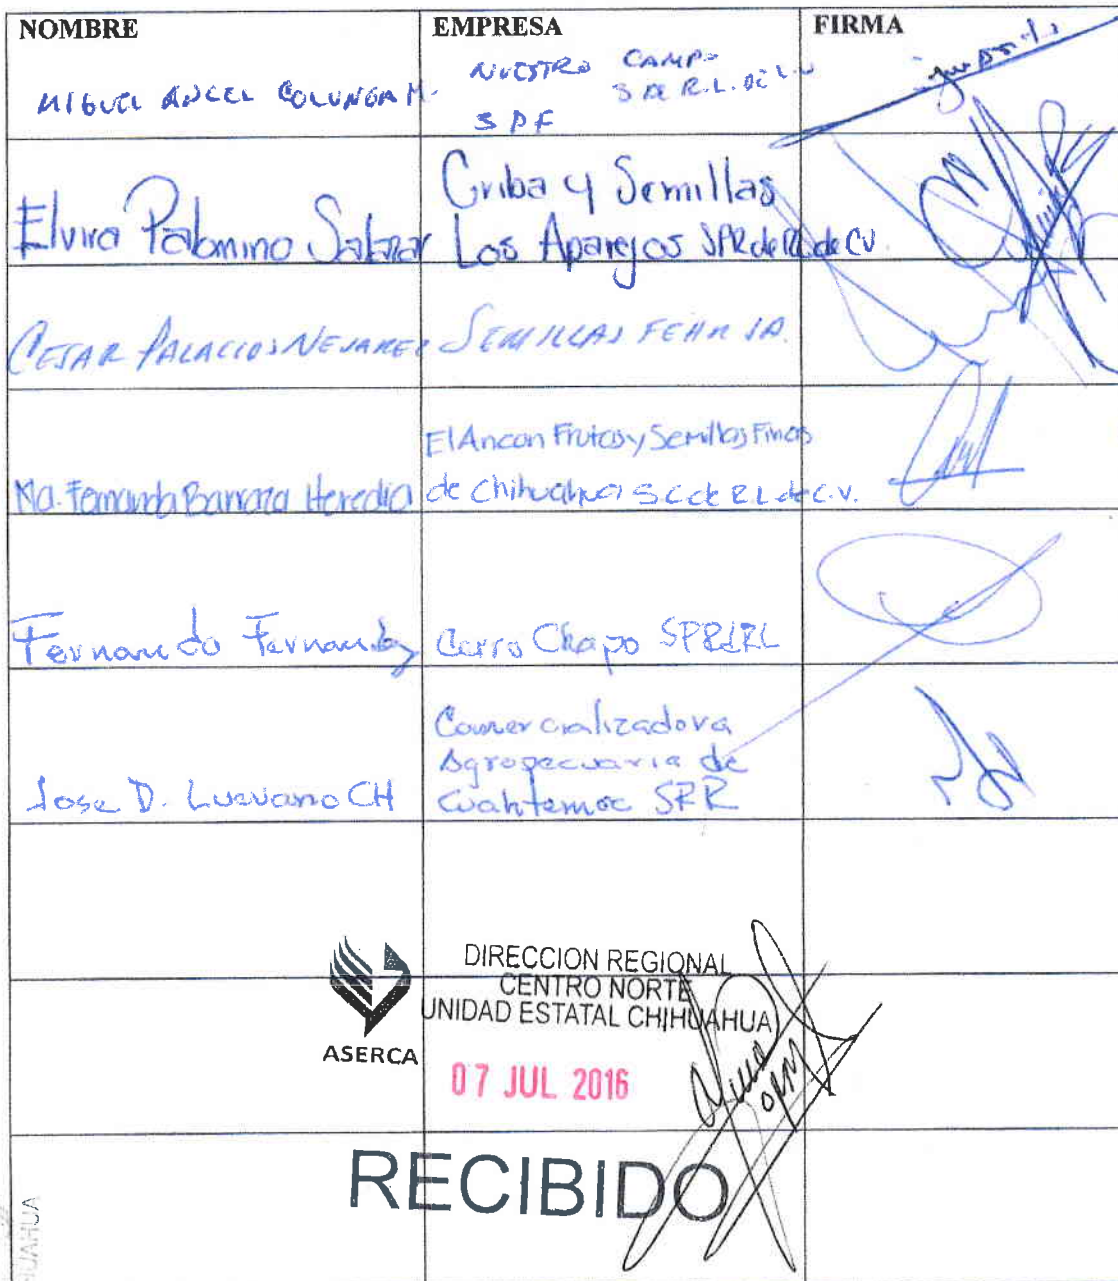 NOMBRE EMPRESA FIRMA
MIGUEL ANGEL COLUNGA M. NUESTRO CAMPO
S DE R.L. DE
SPF
Elvira Palomino Salazar Criba y Semillas
Los Aparejos SPR de RL de CV.
CESAR PALACIOS NEVAREZ SEMILLAS FEHR SA.
Ma. Fernanda Barraza Heredia El Ancon Frutos y Semillas Finas
de Chihuahua S.C de R.L de C.V.
Fernando Fernandez Cerro Chapo SPRdRL
Jose D. Luevano CH Comercializadora
Agropecuaria de
Cuahtemoc SPR
ASERCA
DIRECCION REGIONAL
CENTRO NORTE
UNIDAD ESTATAL CHIHUAHUA
07 JUL 2016
RECIBIDO
HUAHUA